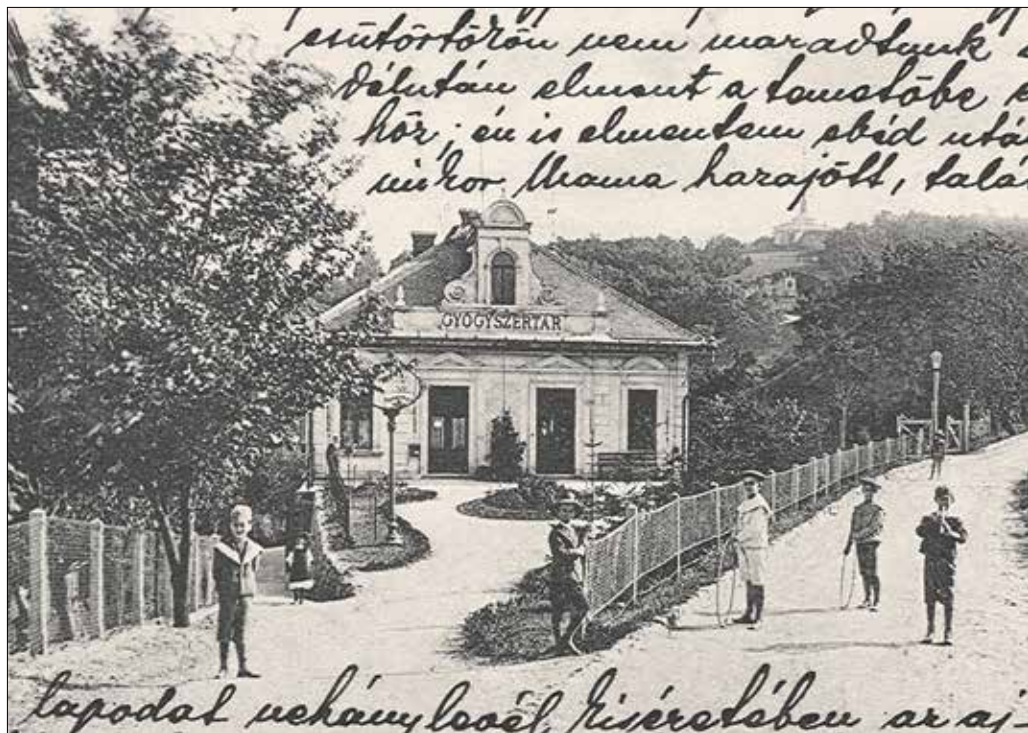 csütörtökön nem maradtunk
délután elment a temetőbe
hőz; én is elmentem ebéd utá
mikor Mama hazajött, talá
GYÓGYSZERTÁR
lapodat nehány levél kíséretében az aj-